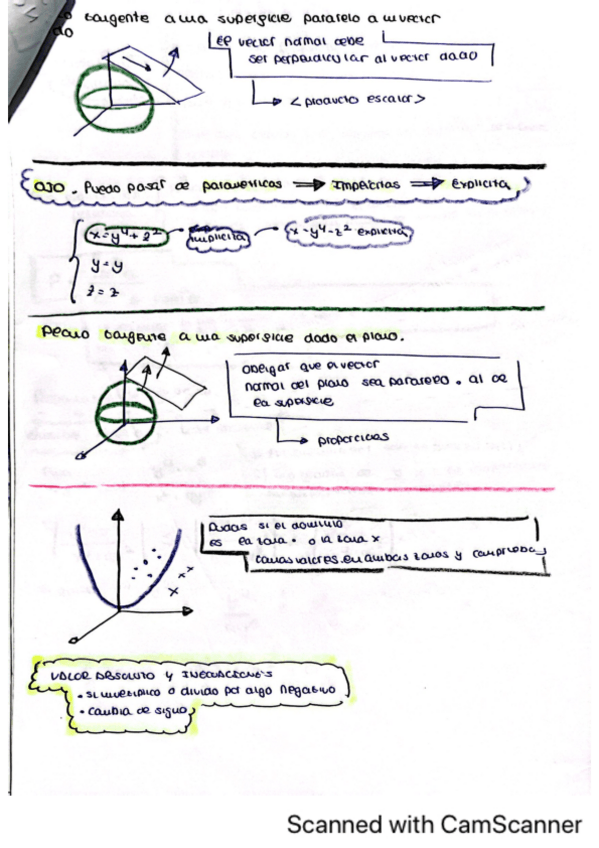 tangente a una superficie paralelo a un vector
do
el vector normal debe
ser perpendicular al vector dado
<producto escalar>
OJO. Puedo pasar de parametricas ⇒ Implicitas ⇒ Explicita
x=y⁴+z² implicita x-y⁴-z² explicita
y=y
z=z
tangente a una superficie dado el plano.
obligar que el vector
normal del plano sea paralelo. al de
la superficie
proporcionas
Dudas si el dominio
es la zona • o la zona x
valores en ambas zonas y
VALOR ABSOLUTO Y INECUACIONES
• si multiplico o divido por algo negativo
• cambia de signo
Scanned with CamScanner